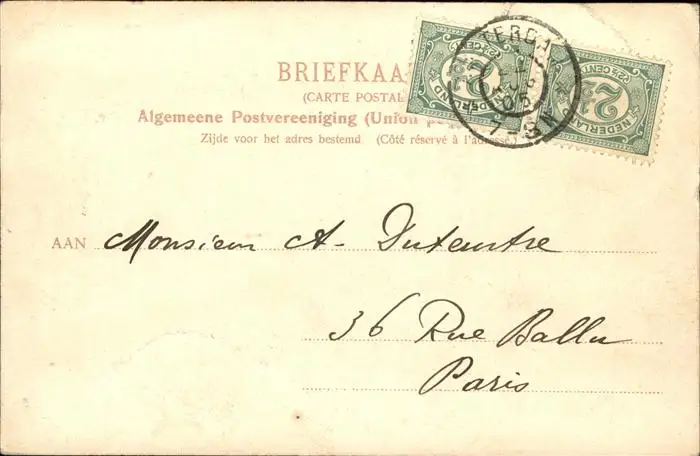 BRIEFKAA
(CARTE POSTAL
Algemeene Postvereeniging (Union p
Zijde voor het adres bestemd (Côté réservé à l'adresse)
2½ CENT
NEDERLAND
2½ CENT
NEDERLAND
TERDA
7-8 N
AAN Monsieur A-
36 Rue Ballu
Paris